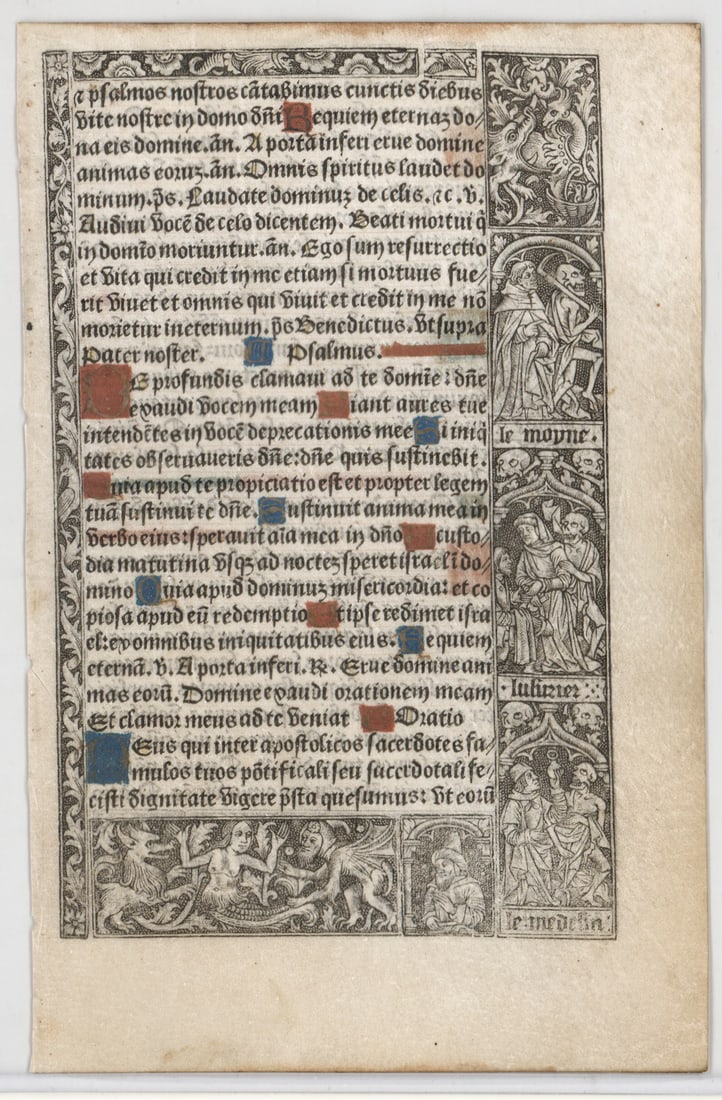 ⁊ psalmos nostros cãtabimus cunctis diebus
vite nostre in domo dñi Requiem eternaʒ do⸗
na eis domine. añ. A porta inferi erue domine
animas eoruʒ. añ. Omnis spiritus laudet do
minum. p̃s. Laudate dominuʒ de celis. ⁊c. v.
Audiui vocẽ de celo dicentem. Beati mortui q̃
in domĩo moriuntur. añ. Ego sum resurrectio
et vita qui credit in me etiam si mortuus fue⸗
rit viuet et omnis qui viuit et credit in me nõ
morietur in eternum. p̃s Benedictus. vt supra
Pater noster. Psalmus.
E profundis clamaui ad te domĩe: dñe
exaudi vocem meam iant aures tue
intendẽtes in vocẽ deprecationis mee Si iniq̃
tates obseruaueris dñe: dñe quis sustinebit.
uia apud te propiciatio est et propter legem
tuã sustinui te dñe. Sustinuit anima mea in
verbo eius: sperauit aĩa mea in dño custo⸗
dia matutina vsqʒ ad noctem speret israel ĩ do⸗
mino Quia apud dominuʒ misericordia: et co
piosa apud eũ redemptio t ipse redimet isra
el: ex omnibus iniquitatibus eius. Requiem
eternã. v. A porta inferi. ℟. Erue domine ani
mas eorũ. Domine exaudi orationem meam
Et clamor meus ad te veniat Oratio
Eus qui inter apostolicos sacerdotes fa⸗
mulos tuos põtificali seu sacerdotali fe⸗
cisti dignitate vigere p̃sta quesumus: vt eorũ
le moyne.
lusurier
le medecin